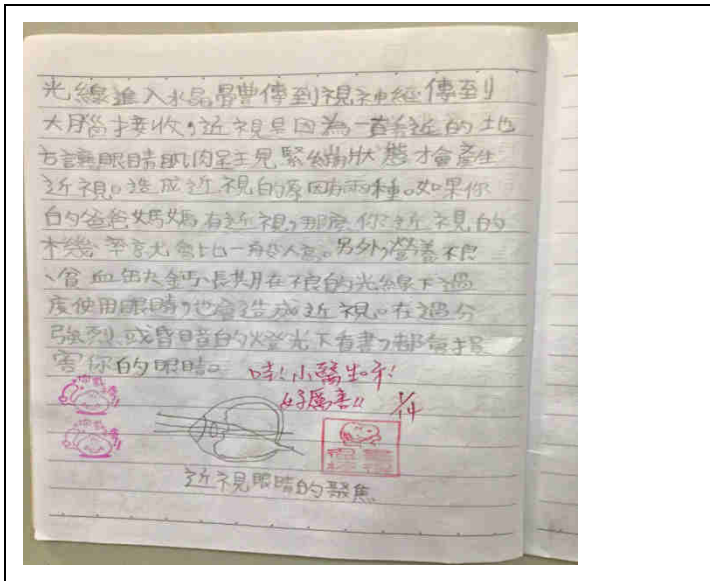 光線進入水晶體會傳到視神經傳到
大腦接收,近視是因為一直看近的地
方讓眼睛肌肉呈現緊繃狀態才會產生
近視。造成近視的原因有兩種。如果你
的爸爸媽媽有近視,那麼你近視的
機率會比一般人高。另外,營養不良
、貧血缺鈣、長期在不良的光線下過
度使用眼睛,也會造成近視。在過分
強烈或昏暗的燈光下看書,都會損
害你的眼睛。
哇!小醫生ㄋ!
好厲害!! 1/14
近視眼睛的聚焦